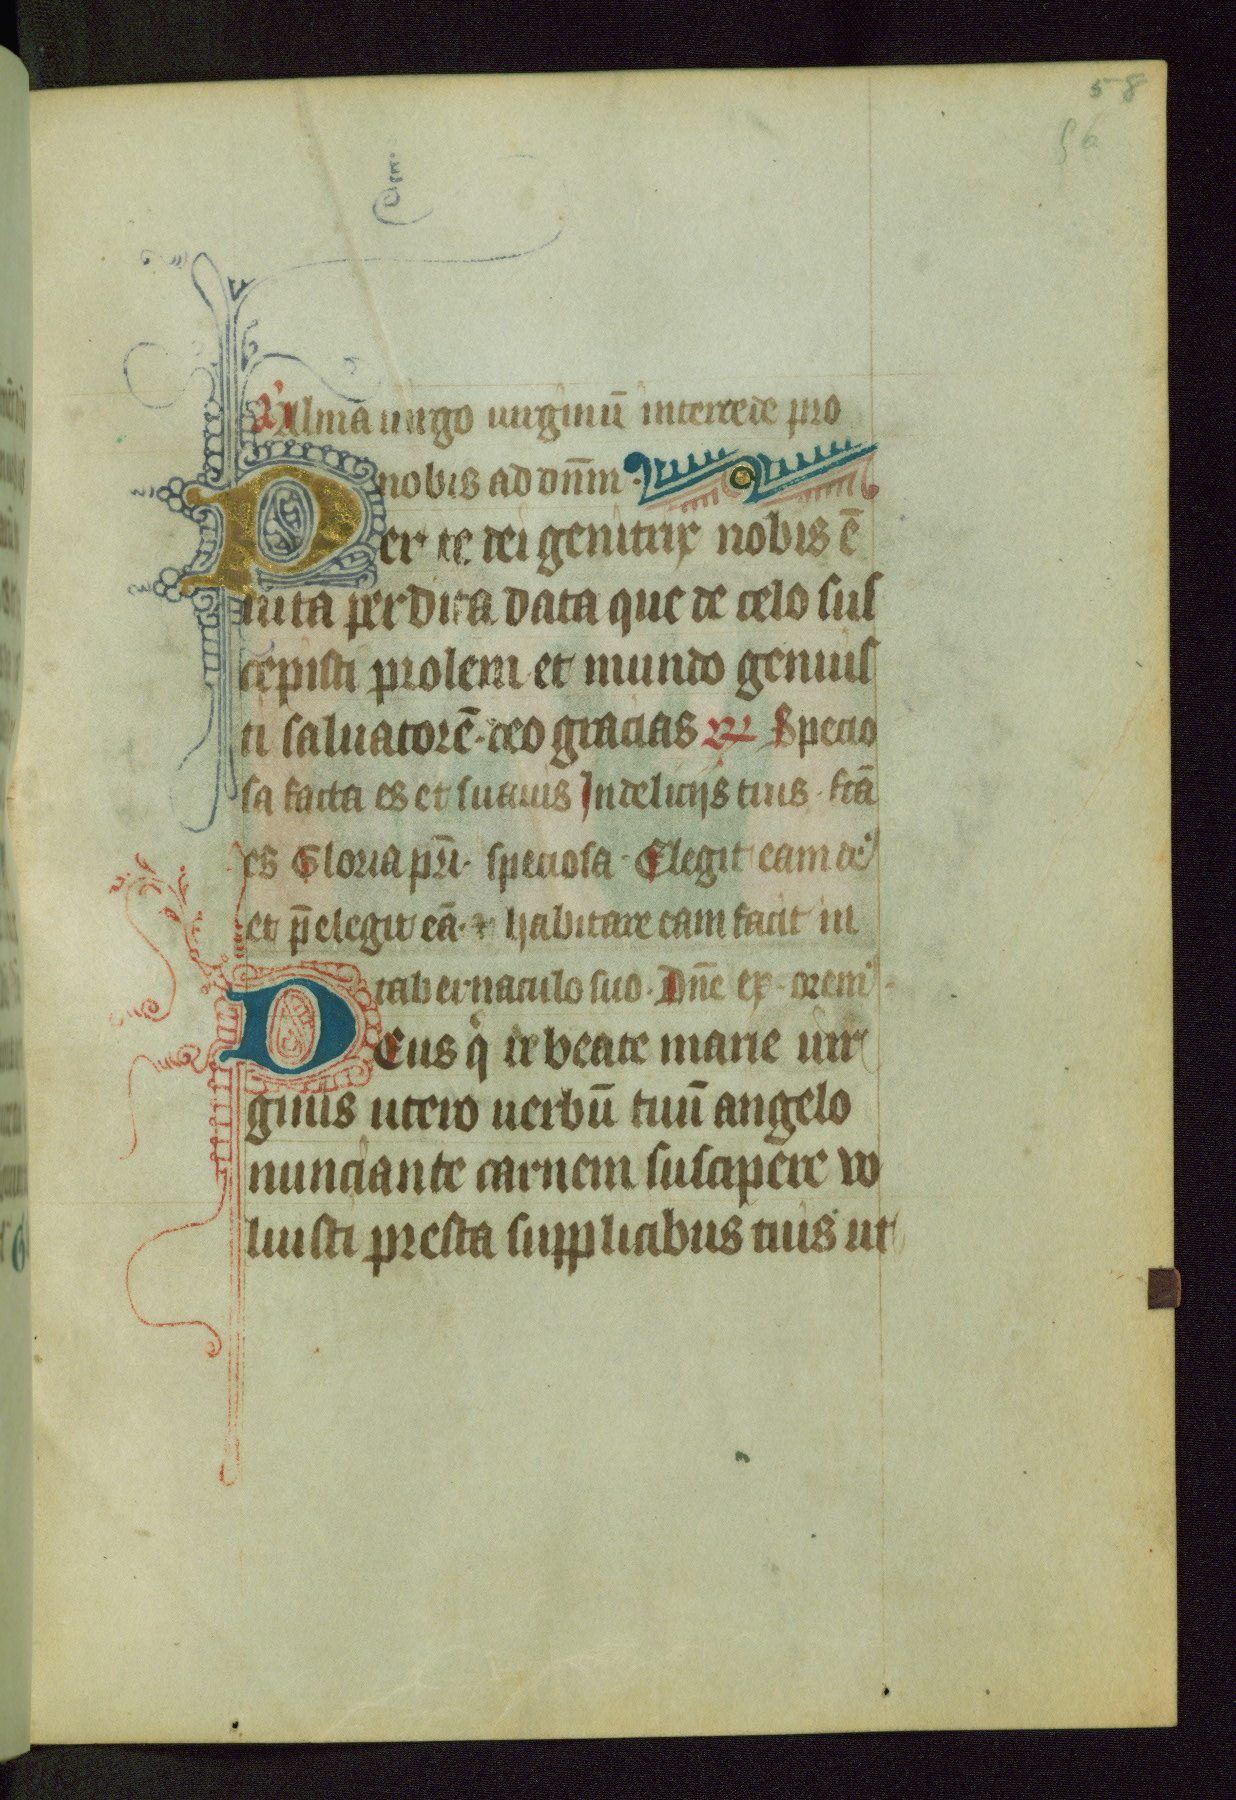 58
56
Alma uirgo uirginū intercede pro
nobis ad dn̄m·
Per te dei genitrix nobis ē
uita perdita data que de celo sus
cepisti prolem et mundo genuis
ti saluatorē· deo gracias Specio
sa facta es et suauis In delicijs tuis · sc̄a
es Gloria pr̄i· speciosa · Elegit eam de'
et p̄elegit eā· habitare eam facit in
tabernaculo suo · Dn̄e ex · orem'
Deus q̇ de beate marie uir
ginis utero uerbū tuū angelo
nunciante carnem suscipere vo
luisti presta supplicibus tuis ut